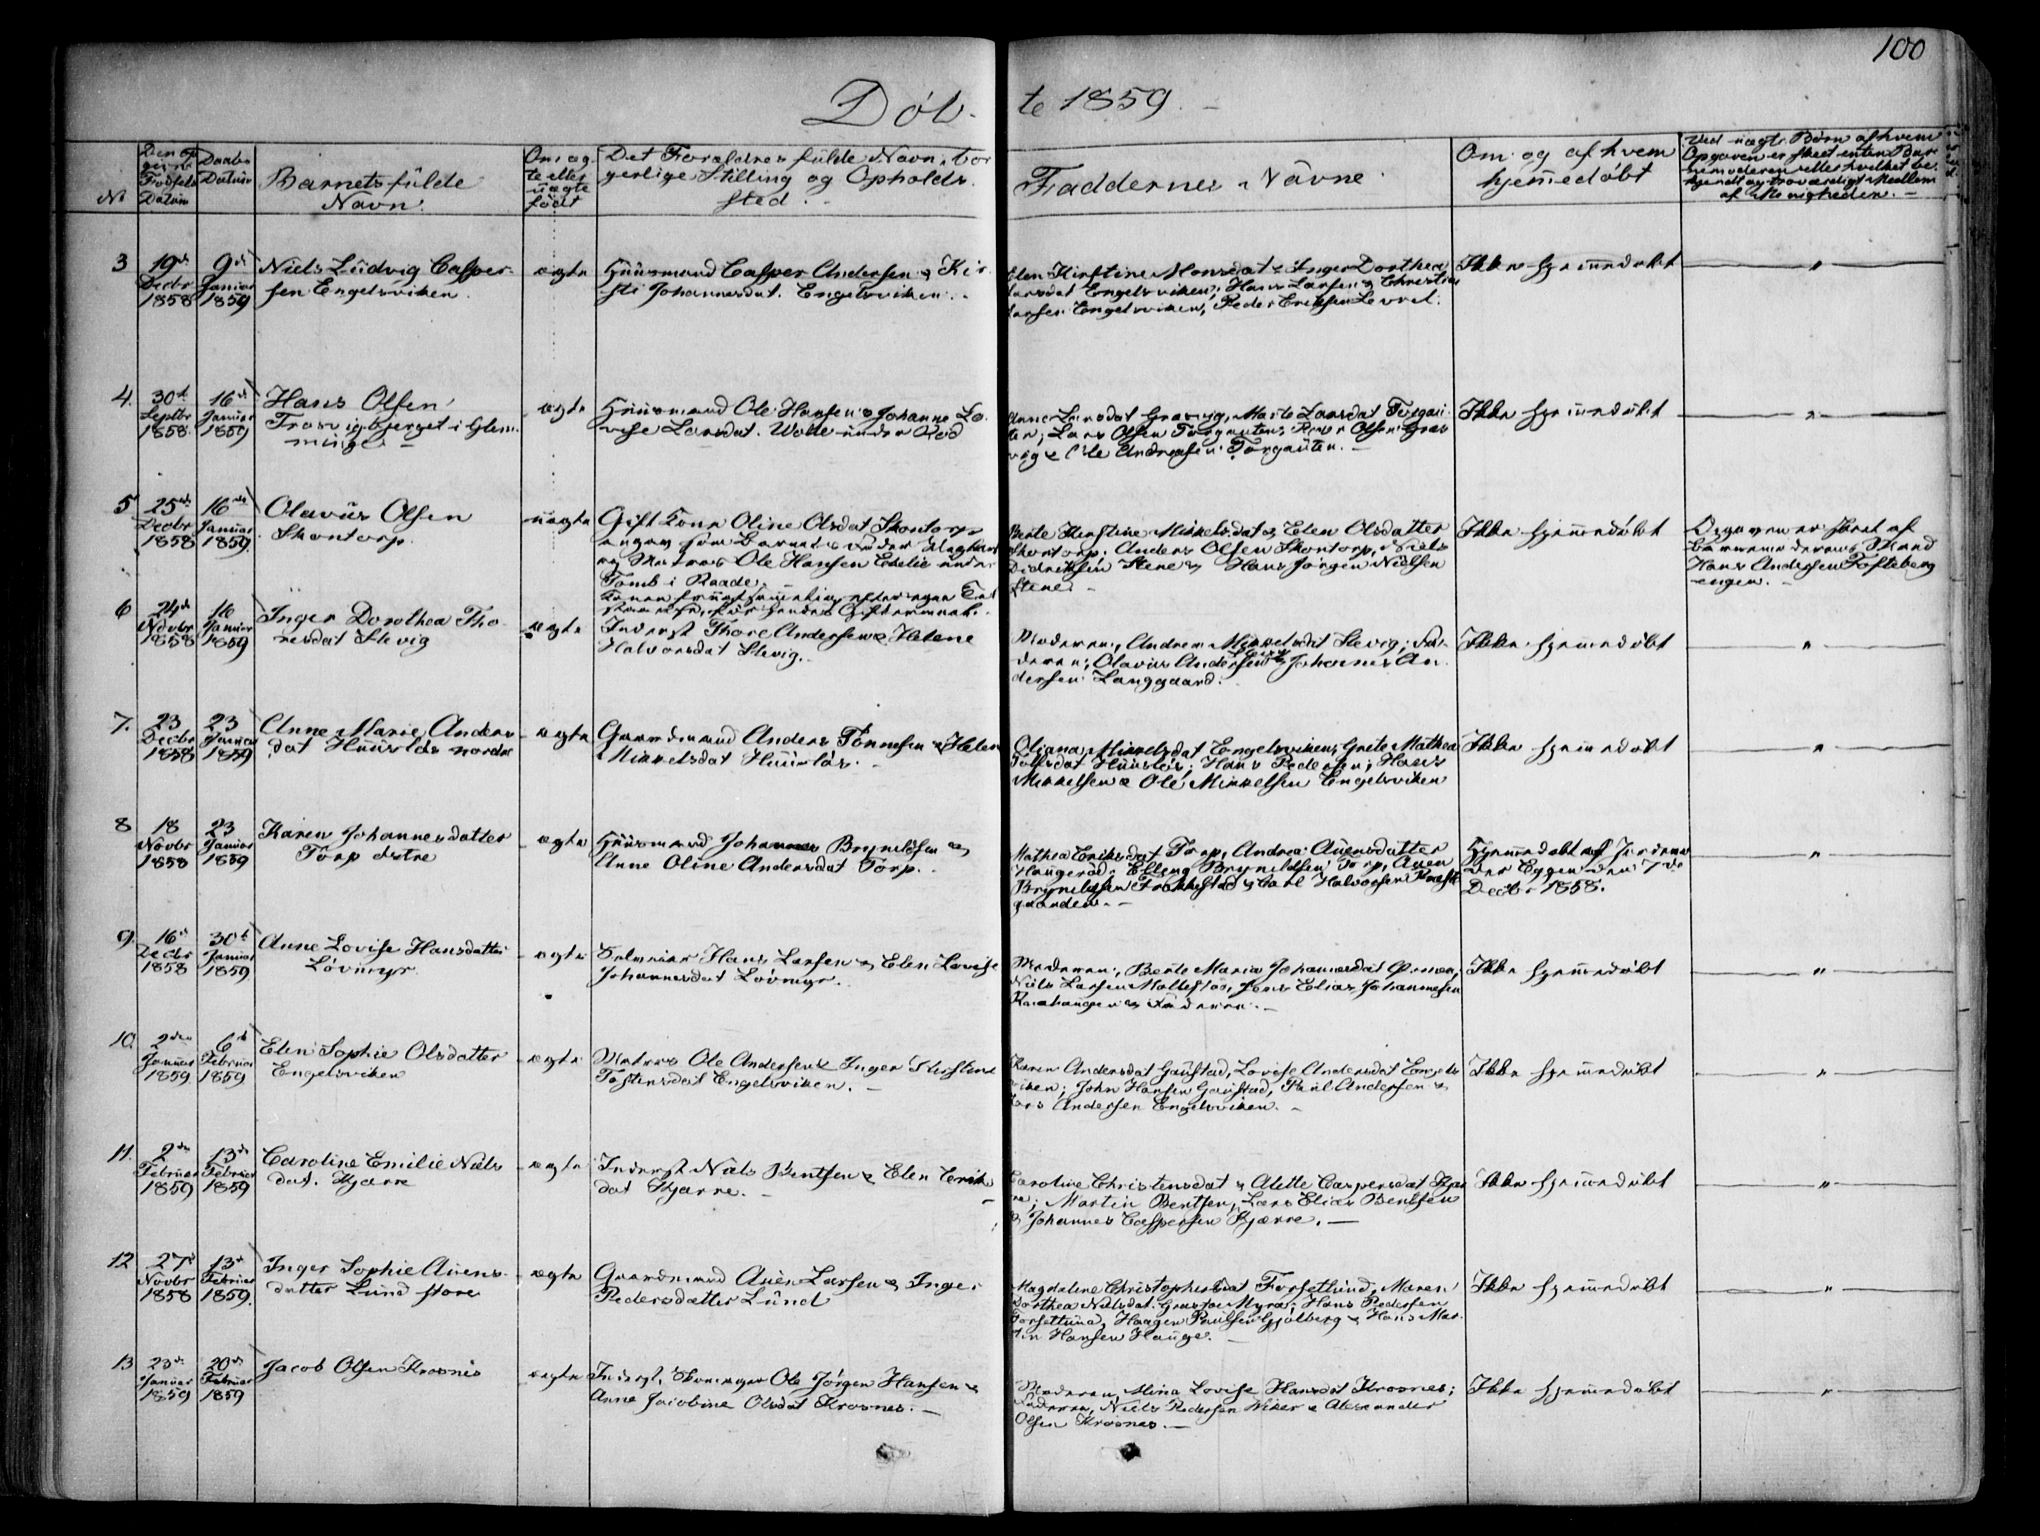 100
Døb-
te 1859.
No
Den op
givne
Fødsels
Datum
Daabs
Datum
Barnets fulde
Navn.
Om æg-
te eller
uægte
født
Det Forældres fulde Navn, bor
gerlige Stilling og Opholds
sted.
Faddernes Navne.
Om og af hvem
hjemmedøbt
Ved uægte Børn af hvem
Opgaven er skeet enten Bar
nemoderen eller hvilket be
kjendt og troværdigt Medlem
af Menigheden.
3
19de
Decbr
1858
9de
Januar
1859
Niels Ludvig Casper-
sen Engelsviken.
ægte
Huusmand Casper Andersen & Kir-
sti Johannesdat. Engelsviken.
Elen Kirstine Monsdat & Inger Dorthea
Larsdat Engelsviken, Hans Larsen & Christian
Larsen Engelsviken, Peder Eriksen Levret.
Ikke hjemmedøbt
"
4.
30te
Septbr
1858.
16de
Januar
1859
Hans Olsen
Trosvigbjerget i Glem-
minge
ægte
Huusmand Ole Hansen & Johanne Lo-
vise Larsdat. Wolle under Rød
Anne Larsdat Gresvig, Marte Larsdat Torgau-
ten; Lars Olsen Torgauten, Peder Olsen Gres
vig & Ole Andreasen Torgauten.
Ikke hjemmedøbt
"
5
25de
Decbr
1858
16de
Januar
1859.
Olavus Olsen
Skontorp.
uægte
Gift Kone Oline Olsdat Skontorp
angav som Barnets Fader Ungkarl
og Matros Ole Hansen Edelie under
Tomb i Raade.
Berte Kirstine Mikkelsdat & Elen Olsdatter
Skontorp. Anders Olsen Skontorp, Niels
Didriksen Stene & Hans Jørgen Nielsen
Stene.
Ikke hjemmedøbt
Opgaven er skeet af
Barnemoderens Mand
Hans Andersen Tofteberg
engen.
6
24de
Novbr
1858
16
Januar
1859
Inger Dorothea Tho-
resdat Slevig
ægte
Inderst Thore Andersen & Helene
Halvorsdat Slevig.
Moderen, Andrea Mikkelsdat Slevig; Fa-
deren; Olavus Andersen Slevig & Johannes An-
dersen Langgaard.
Ikke hjemmedøbt
"
7.
23
Decbr
1858
23
Januar
1859
Anne Marie Anders
dat Huusløs nordre
ægte
Gaardmand Anders Tønnesen & Helen
Mikkelsdat Huusløs.
Oliana Mikkelsdat Engelsviken, Grete Mathea
Tollefsdat Huusløs; Hans Pedersen; Hans
Mikkelsen & Ole Mikkelsen Engelsviken
Ikke hjemmedøbt
"
8
18
Novbr
1858
23
Januar
1859
Karen Johannesdatter
Torp østre
ægte
Huusmand Johannes Brynildsen &
Anne Oline Andersdat Torp.
Mathea Eriksdat Torp, Andrea Auensdatter
Haugerød, Elling Brynildsen Torp, Auen
Brynildsen Trokkestad & Carl Halvorsen Præste
gaarden.
Hjemmedøbt af
der Eggen den 7de
Decbr 1858.
"
9.
16de
Decbr
1858
30te
Januar
1859
Anne Lovise Hansdatter
Løvmyr
ægte
Selveier Hans Larsen & Elen Lovise
Johannesdat Løvmyr.
Moderen; Berte Maria Johannesdat
Niels Larsen Jens Elias Johannesen
& Faderen.
Ikke hjemmedøbt
"
10.
2den
Januar
1859
6te
Februar
1859
Elen Sophie Olsdatter
Engelsviken
ægte
Matros Ole Andersen & Inger Kirstine
Tostensdat Engelsviken.
Karen Andersdat Gaustad, Lovise Andersdat Engels
viken; John Hansen Gaustad, Paul Andersen &
Lars Andersen Engelsviken.
Ikke hjemmedøbt
"
11.
2den
Februar
1859
13de
Februar
1859
Caroline Emilie Niels
dat. Kjærre
ægte
Inderst Niels Bentsen & Elen Eriks
dat Kjærre.
Caroline Christensdat & Alette Caspersdat Kjær
re; Martin Bentsen, Lars Elias Bentsen
& Johannes Caspersen Kjærre.
Ikke hjemmedøbt
"
12
27de
Novbr
1858
13de
Februar
1859.
Inger Sophie Auens-
datter Lund store
ægte
Gaardmand Auen Larsen & Inger
Pedersdatter Lund
Magdalene Christophersdat Forsetlund, Maren
Dorthea Nielsdat. Myra; Hans Pedersen
Forsetlund, Haagen Paulsen Gjølberg & Hans Mar-
tin Hansen Hauge.
Ikke hjemmedøbt
"
13
23de
Januar
1859
20de
Februar
1859
Jacob Olsen Krosnes
ægte
Inderst, Skomager Ole Jørgen Hansen &
Anne Jacobine Olsdat Krosnes.
Moderen, Mina Lovise Hansdat Krosnes;
Faderen, Niels Pedersen Wiker & Alexander
Olsen Krosnes.
Ikke hjemmedøbt
"